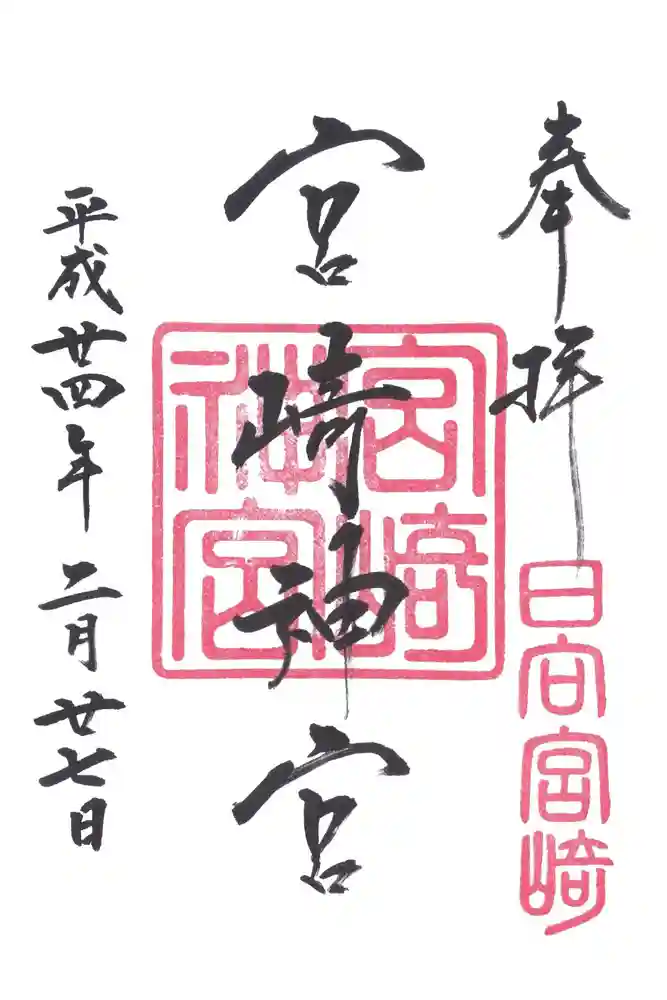 奉拝
日向宮崎
宮崎神宮
宮崎神宮
平成廿四年二月廿七日